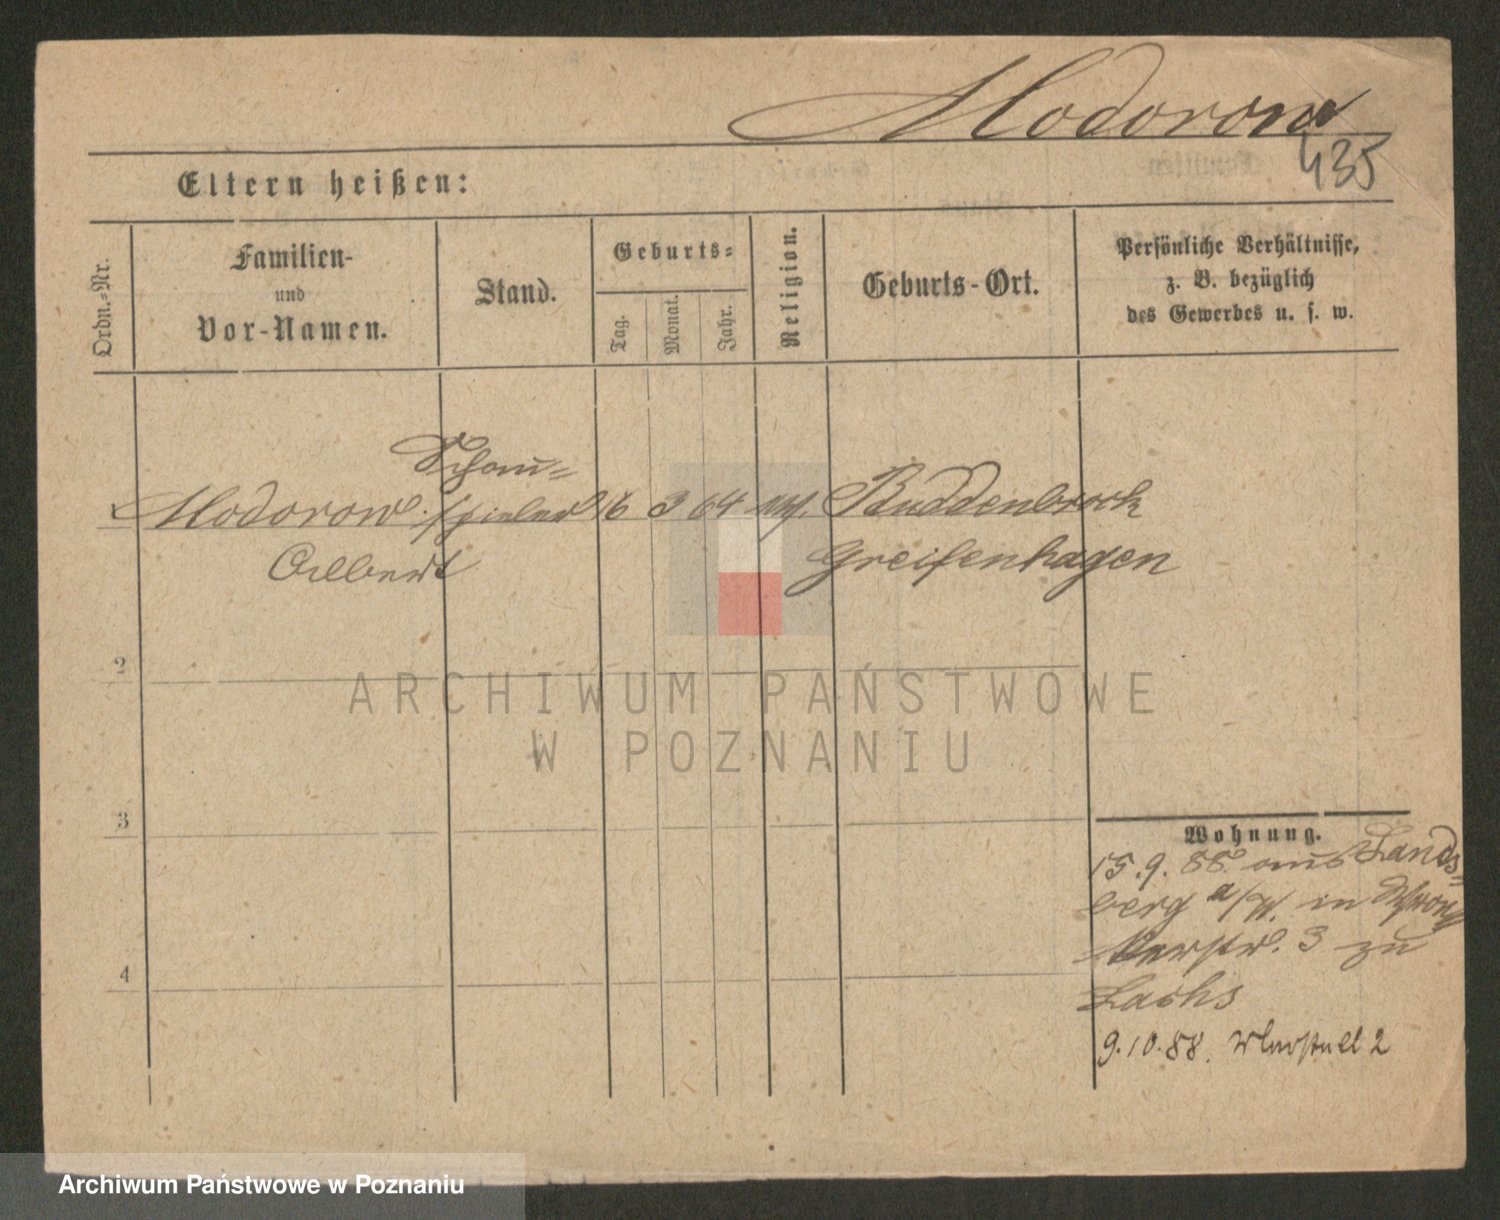 Modorow
435
Eltern heißen:
Ordn.-Nr.
Familien-
und
Vor-Namen.
Stand.
Geburts-
Tag.
Monat.
Jahr.
Religion.
Geburts-Ort.
Persönliche Verhältnisse,
z. B. bezüglich
des Gewerbes u. s. w.
Schau-
1 Modorow spieler 16 3 64 Buddenbrock
Albert Greifenhagen
2
ARCHIWUM PAŃSTWOWE
W POZNANIU
3
Wohnung.
15.9.88. aus Lands-
berg a/W. in
3 zu
Lachs
4
9.10.88. 2
Archiwum Państwowe w Poznaniu